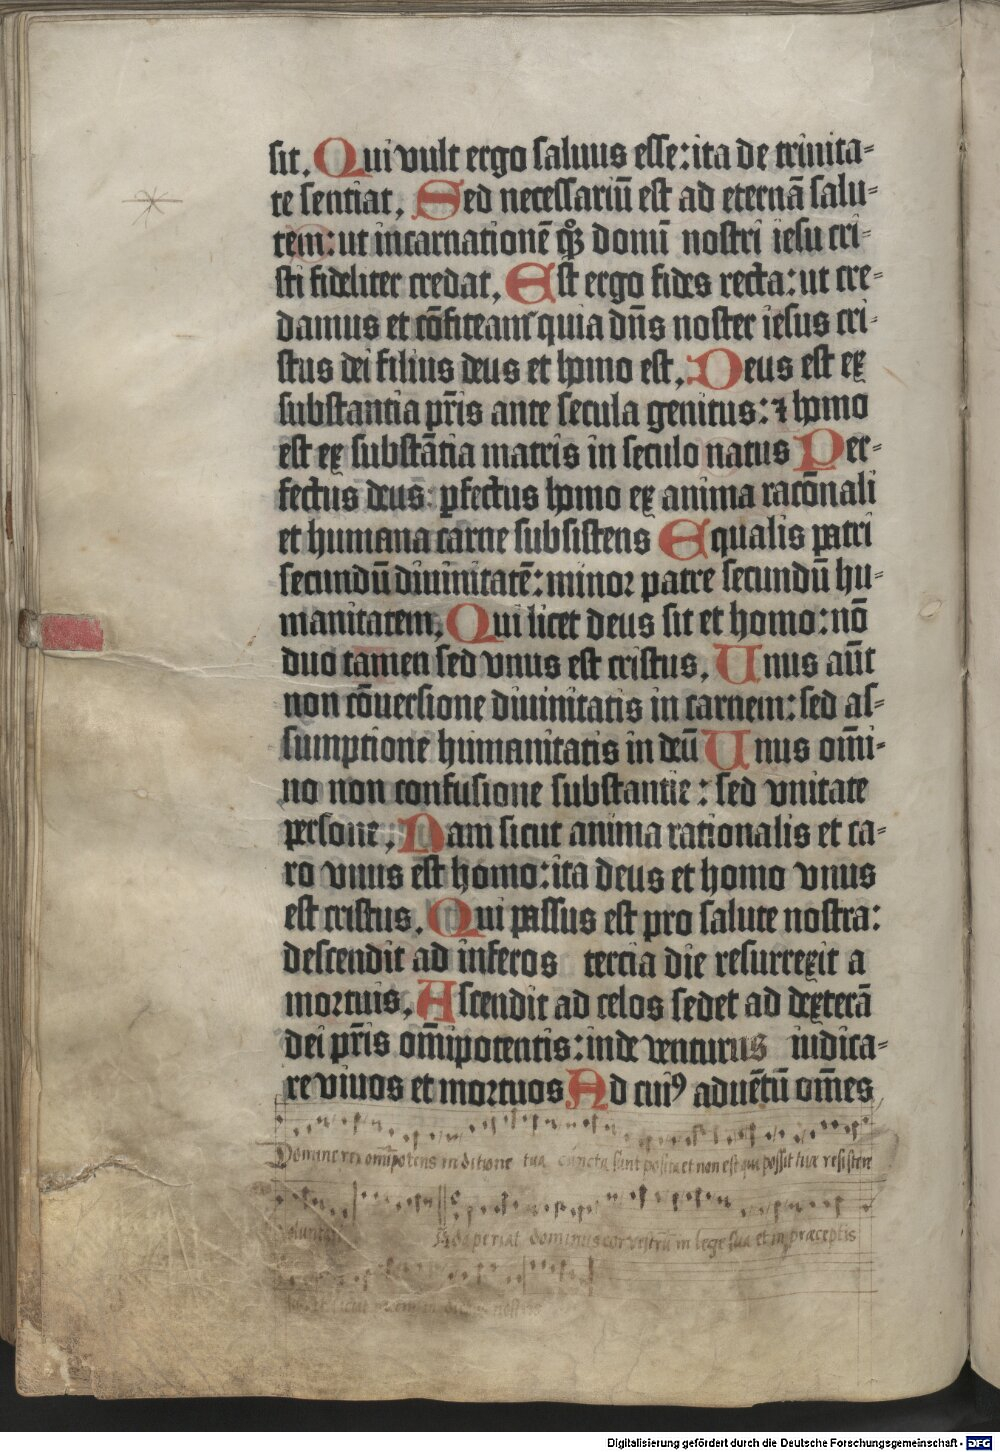 sit. Qui vult ergo saluus esse: ita de trinita-
te sentiat. Sed necessariū est ad eternā salu-
tem: ut incarnationē qꝫ domī nostri iesu cri-
sti fideliter credat. Est ergo fides recta: ut cre-
damus et cōfiteamr quia dn̄s noster iesus cri-
stus dei filius deus et homo est. Deus est ex
substantia pr̄is ante secula genitus: ⁊ homo
est ex substātia matris in seculo natus Per-
fectus deus: ꝑfectus homo ex anima racōnali
et humana carne subsistens Equalis patri
secundū diuinitatē: minor patre secundū hu-
manitatem. Qui licet deus sit et homo: nō
duo tamen sed vnus est cristus. Unus aūt
non cōuersione diuinitatis in carnem: sed as-
sumptione humanitatis in deū Unus om̄i-
no non confusione substantie: sed vnitate
persone. Nam sicut anima rationalis et ca-
ro vnus est homo: ita deus et homo vnus
est cristus. Qui passus est pro salute nostra:
descendit ad inferos tercia die resurrexit a
mortuis. Ascendit ad celos sedet ad dexterā
dei pr̄is om̄ipotentis: inde venturus iudica-
re viuos et mortuos Ad cuiꝰ aduētū om̄es
Domine rex omīpotens in ditione tua cuncta sunt posita et non est qui possit tuæ resistere
volunta Adaperiat dominus cor vestrū in lege sua et in præceptis
Digitalisierung gefördert durch die Deutsche Forschungsgemeinschaft - DFG